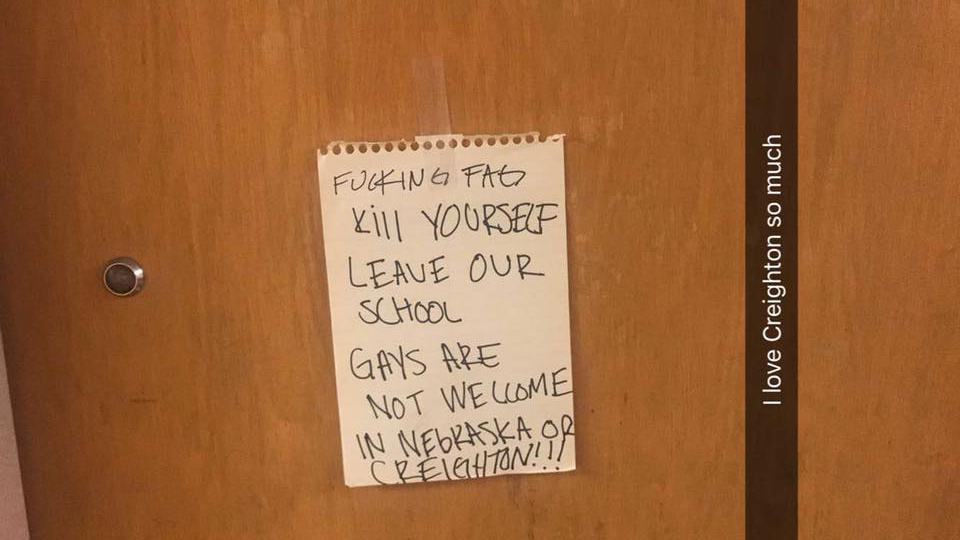 FUCKING FAG
KILL YOURSELF
LEAVE OUR
SCHOOL
GAYS ARE
NOT WELCOME
IN NEBRASKA OR
CREIGHTON!!!
I love Creighton so much